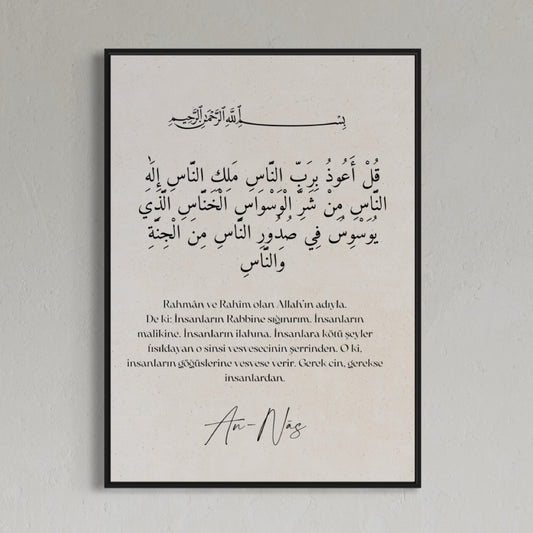 بِسْمِ ٱللَّهِ ٱلرَّحْمَٰنِ ٱلرَّحِيمِ
قُلْ أَعُوذُ بِرَبِّ النَّاسِ مَلِكِ النَّاسِ إِلَٰهِ
النَّاسِ مِنْ شَرِّ الْوَسْوَاسِ الْخَنَّاسِ الَّذِي
يُوَسْوِسُ فِي صُدُورِ النَّاسِ مِنَ الْجِنَّةِ
وَالنَّاسِ
Rahmân ve Rahîm olan Allah'ın adıyla.
De ki: İnsanların Rabbine sığınırım. İnsanların
malikine. İnsanların ilahına. İnsanlara kötü şeyler
fısıldayan o sinsi vesvesecinin şerrinden. O ki,
insanların göğüslerine vesvese verir. Gerek cin, gerekse
insanlardan.
An-Nās